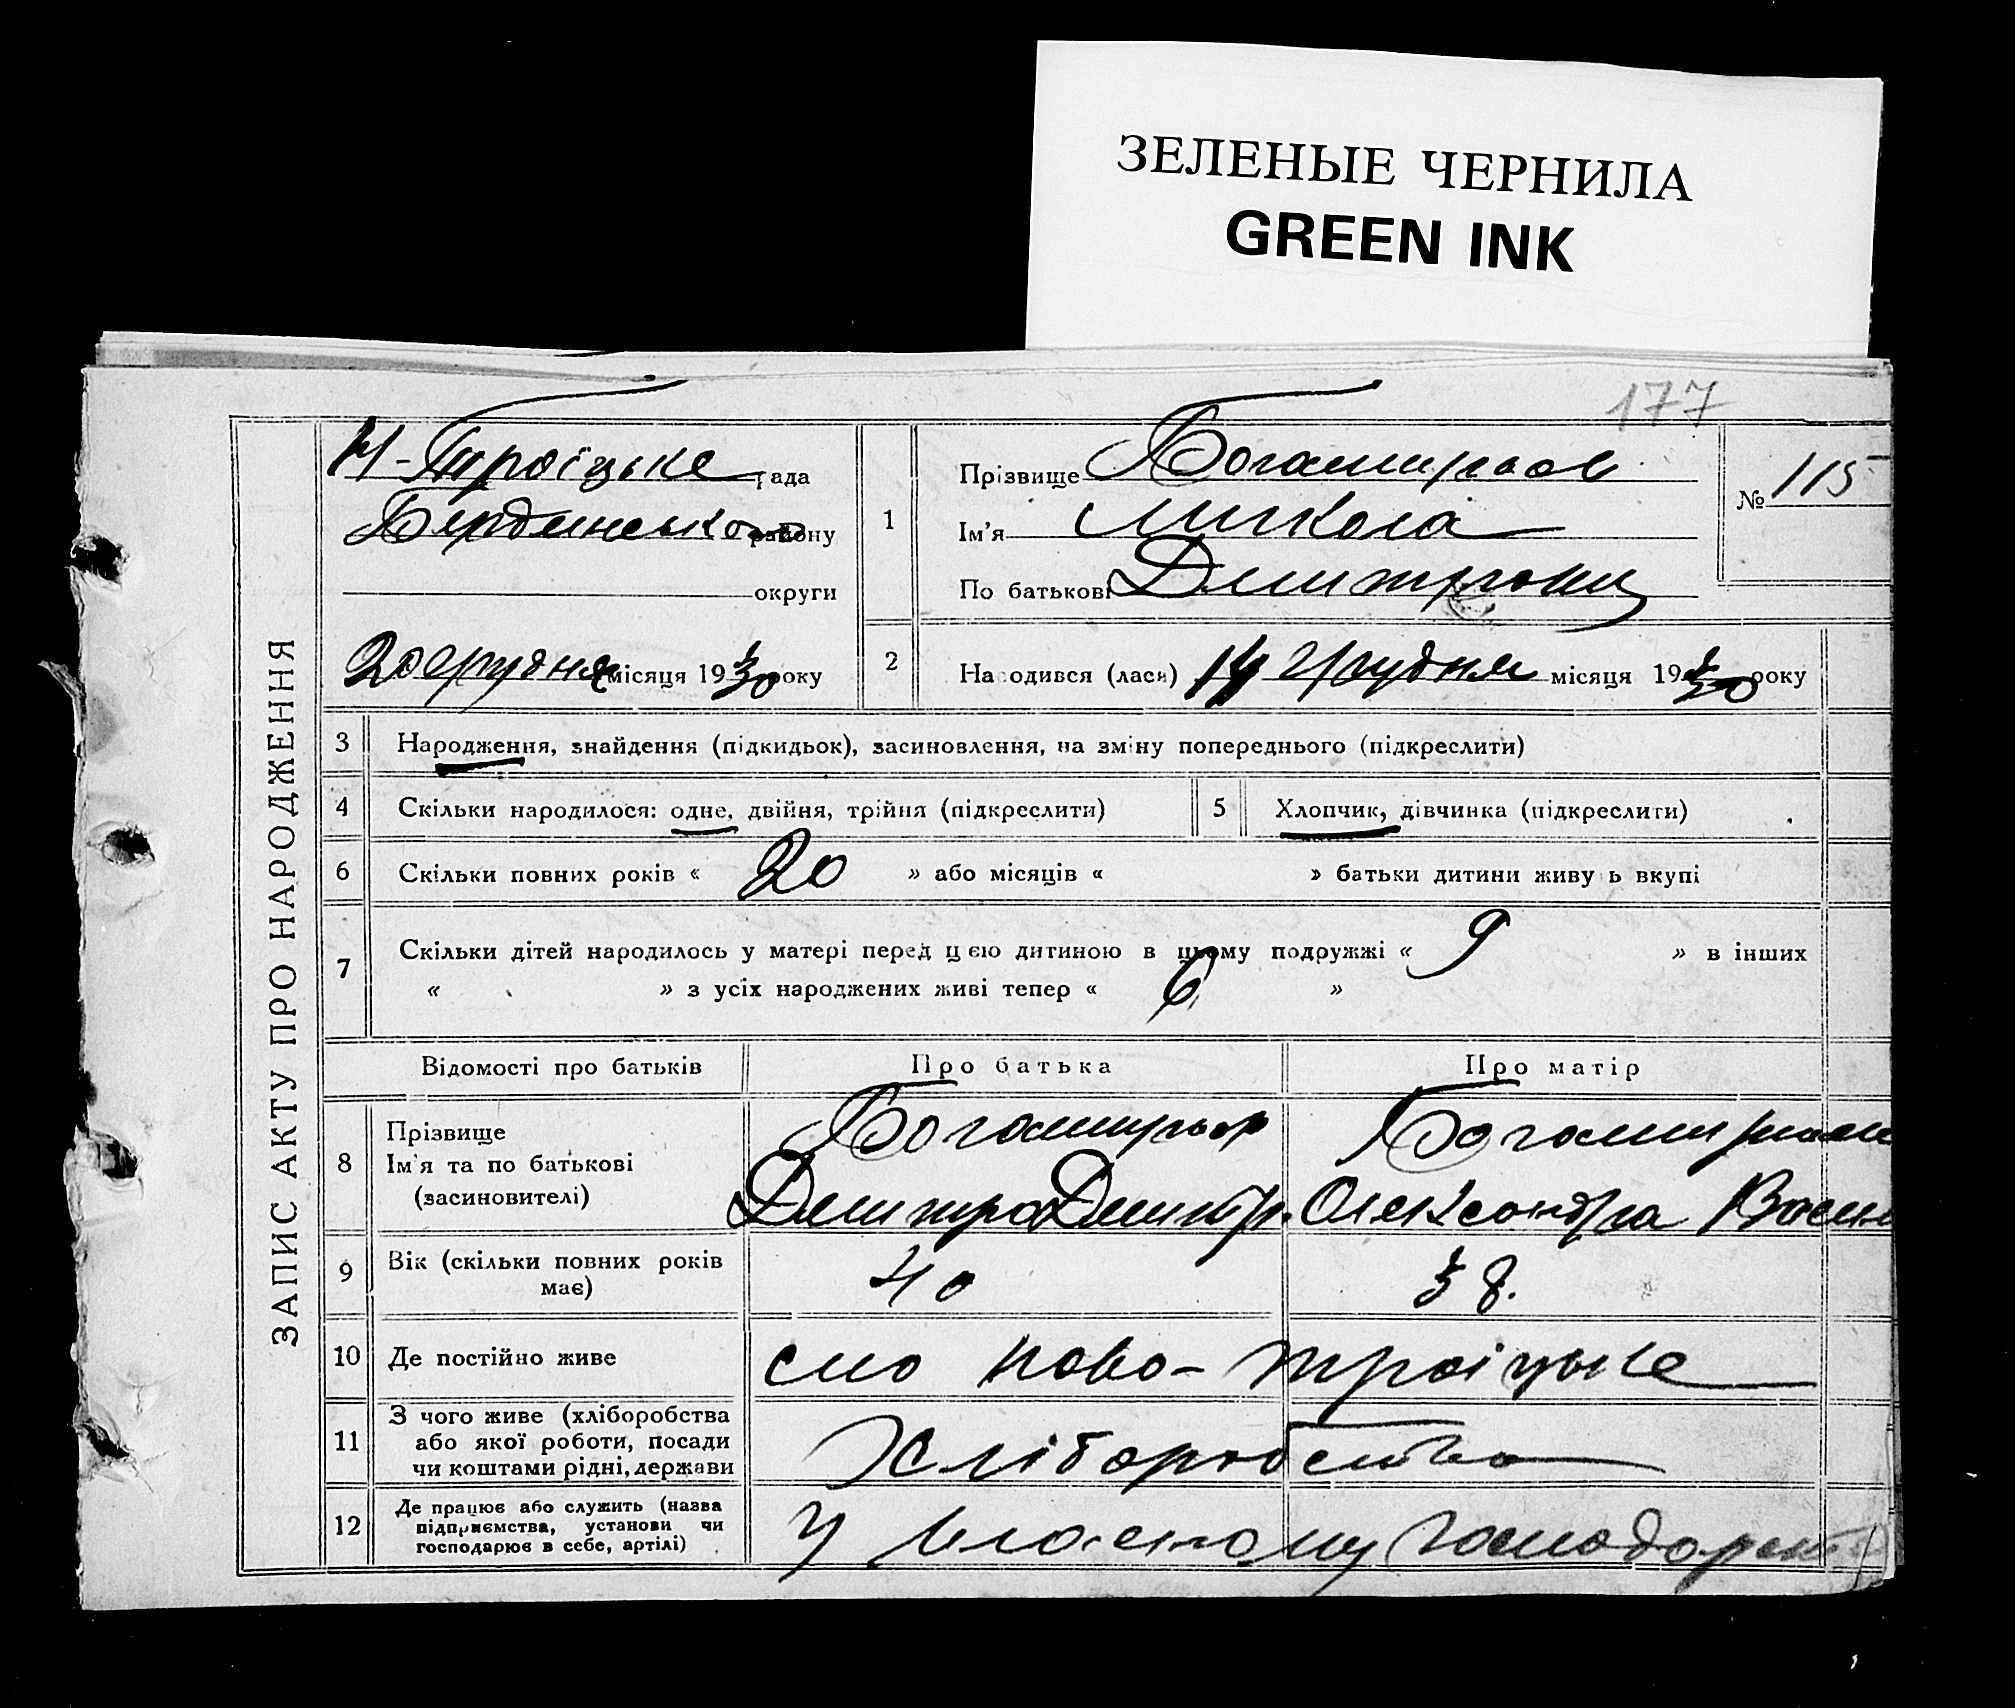 ЗЕЛЕНЫЕ ЧЕРНИЛА
GREEN INK
177
ЗАПИС АКТУ ПРО НАРОДЖЕННЯ
Н-Троїцьке рада
Бердянського району
округи
20 грудня місяця 1930 року
1
Прізвище Богатирьов
Ім'я Микола
По батькові Дмитрович
№ 115
2
Народився (лася) 14 грудня місяця 1930 року
3 Народження, знайдення (підкидьок), засиновлення, на зміну попереднього (підкреслити)
4 Скільки народилося: одне, двійня, трійня (підкреслити)
5 Хлопчик, дівчинка (підкреслити)
6 Скільки повних років « 20 » або місяців « » батьки дитини живуть вкупі
7 Скільки дітей народилось у матері перед цією дитиною в цьому подружжі « 9 » в інших
« » з усіх народжених живі тепер « 6 »
Відомості про батьків Про батька Про матір
8 Прізвище
Ім'я та по батькові
(засиновителі)
Богатирьов
Дмитро Дмитр.
Олександра
9 Вік (скільки повних років
має)
40 38.
10 Де постійно живе
село Ново-Троїцьке
11 З чого живе (хліборобства
або якої роботи, посади
чи коштами рідні, держави
Хліборобство
12 Де працює або служить (назва
підприємства, установи чи
господарює в себе, артілі)
У власному